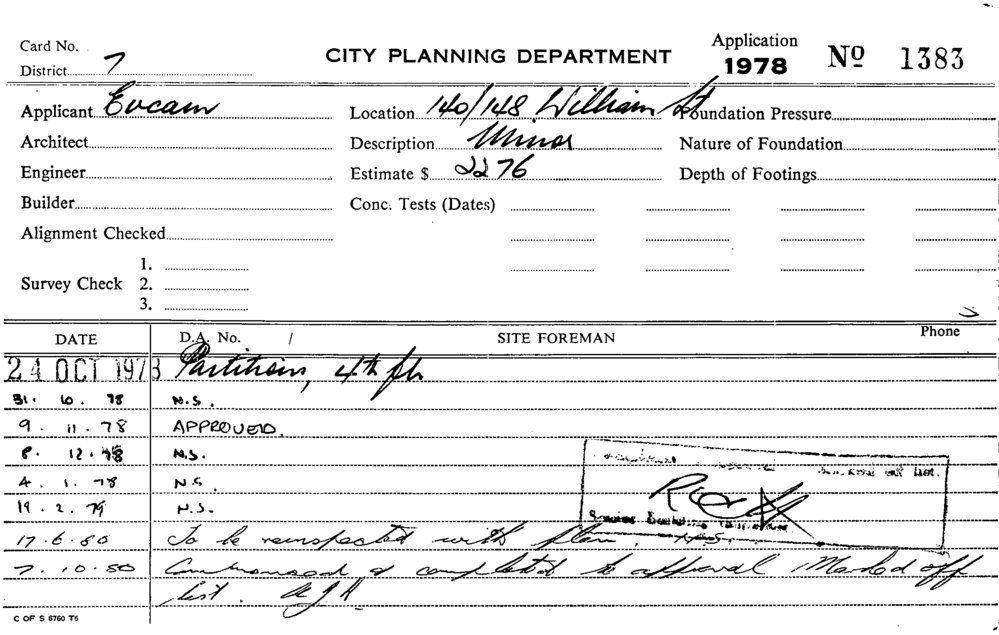 Card No.
District 7
CITY PLANNING DEPARTMENT
Application
1978
Nº 1383
Applicant Eucam
Location 140/148 William St
Foundation Pressure
Architect
Description Minor
Nature of Foundation
Engineer
Estimate $ 2276
Depth of Footings
Builder
Conc. Tests (Dates)
Alignment Checked
Survey Check
1.
2.
3.
DATE
D.A. No. /
SITE FOREMAN
Phone
24 OCT 1978 Partitions, 4th flr
31. 10. 78 N.S.
9. 11. 78 APPROVED.
8. 12. 78 N.S.
4. 1. 78 N.S.
19. 2. 79 N.S.
17.6.80 To be reinspected with plan. N.S.
7.10.80 Commenced & completed to approval Marked off
list. AJH
off list.
Senior Building
C OF S 6760 T5